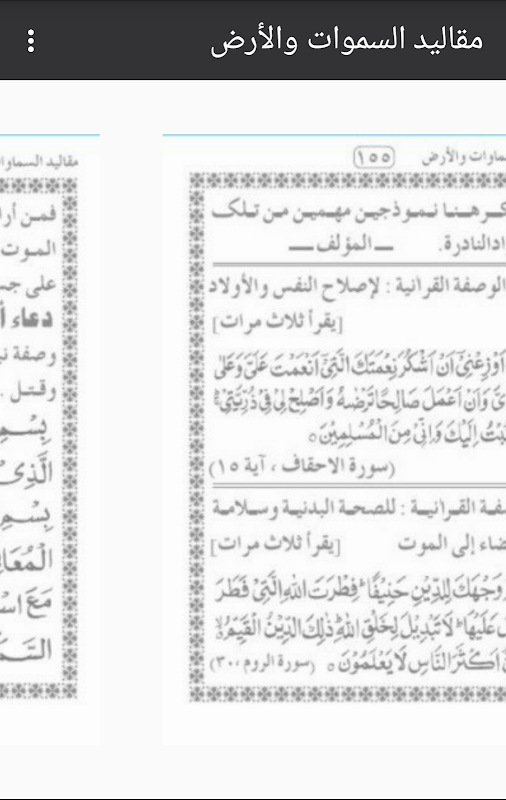 مقاليد السموات والأرض
ماوات والأرض
١٥٥
كرهنا نموذجين مهمين من تلك
ادالنادرة. — المؤلف —
الوصفة القرانية : لإصلاح النفس والأولاد
[يقرأ ثلاث مرات]
اَوْزِعْنِیْ اَنْ اَشْكُرَ نِعْمَتَكَ الَّتِیْ اَنْعَمْتَ عَلَیَّ وَعَلٰی
یَّ وَاَنْ اَعْمَلَ صَالِحًا تَرْضٰىهُ وَاَصْلِحْ لِیْ فِیْ ذُرِّیَّتِیْ
تُبْتُ اِلَیْكَ وَاِنِّیْ مِنَ الْمُسْلِمِیْنَ
(سورة الاحقاف ، آية ١٥)
صفة القرانية : للصحة البدنية وسلامة
ضاء إلى الموت [يقرأ ثلاث مرات]
وَجْهَكَ لِلدِّیْنِ حَنِیْفًا فِطْرَتَ اللّٰهِ الَّتِیْ فَطَرَ
عَلَیْهَا لَا تَبْدِیْلَ لِخَلْقِ اللّٰهِ ذٰلِكَ الدِّیْنُ الْقَیِّمُ
اَكْثَرَ النَّاسِ لَا یَعْلَمُوْنَ (سورة الروم ،٣٠)
مقاليد السماوا
فمن أرا
الموت
على جس
دعاء أ
وصفة نب
وقتل .
بِسْمِ
الَّذِیْ
بِسْمِ
الْمُعَا
مَعَ اسْ
السَّمَ